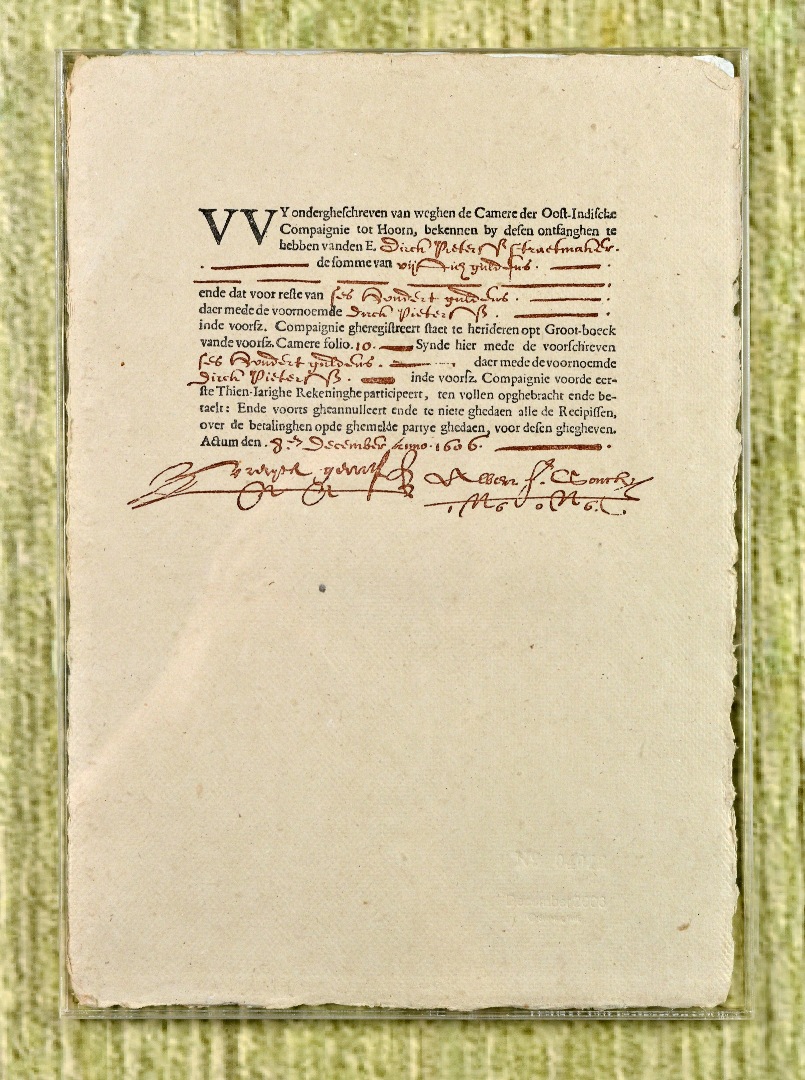 VVY ondergheſchreven van weghen de Camere der Ooſt-Indiſche
Compaignie tot Hoorn, bekennen by deſen ontfanghen te
hebben vanden E. Dirck Pieterſz Straetmaker.
de ſomme van guldens.
ende dat voor reſte van ſes hondert guldens.
daer mede de voornoemde Dirck Pieterſz.
inde voorſz. Compaignie gheregiſtreert ſtaet te herideren opt Groot-boeck
vande voorſz. Camere folio. 10. Synde hier mede de voorſchreven
ſes hondert guldens. daer mede de voornoemde
Dirck Pieterſz. inde voorſz. Compaignie voorde eer-
ſte Thien-Iarighe Rekeninghe participeert, ten vollen opghebracht ende be-
taelt: Ende voorts gheannulleert ende te niete ghedaen alle de Recipiſſen,
over de betalinghen opde ghemelde partye ghedaen, voor deſen ghegheven.
Actum den. 8. December Anno. 1606.